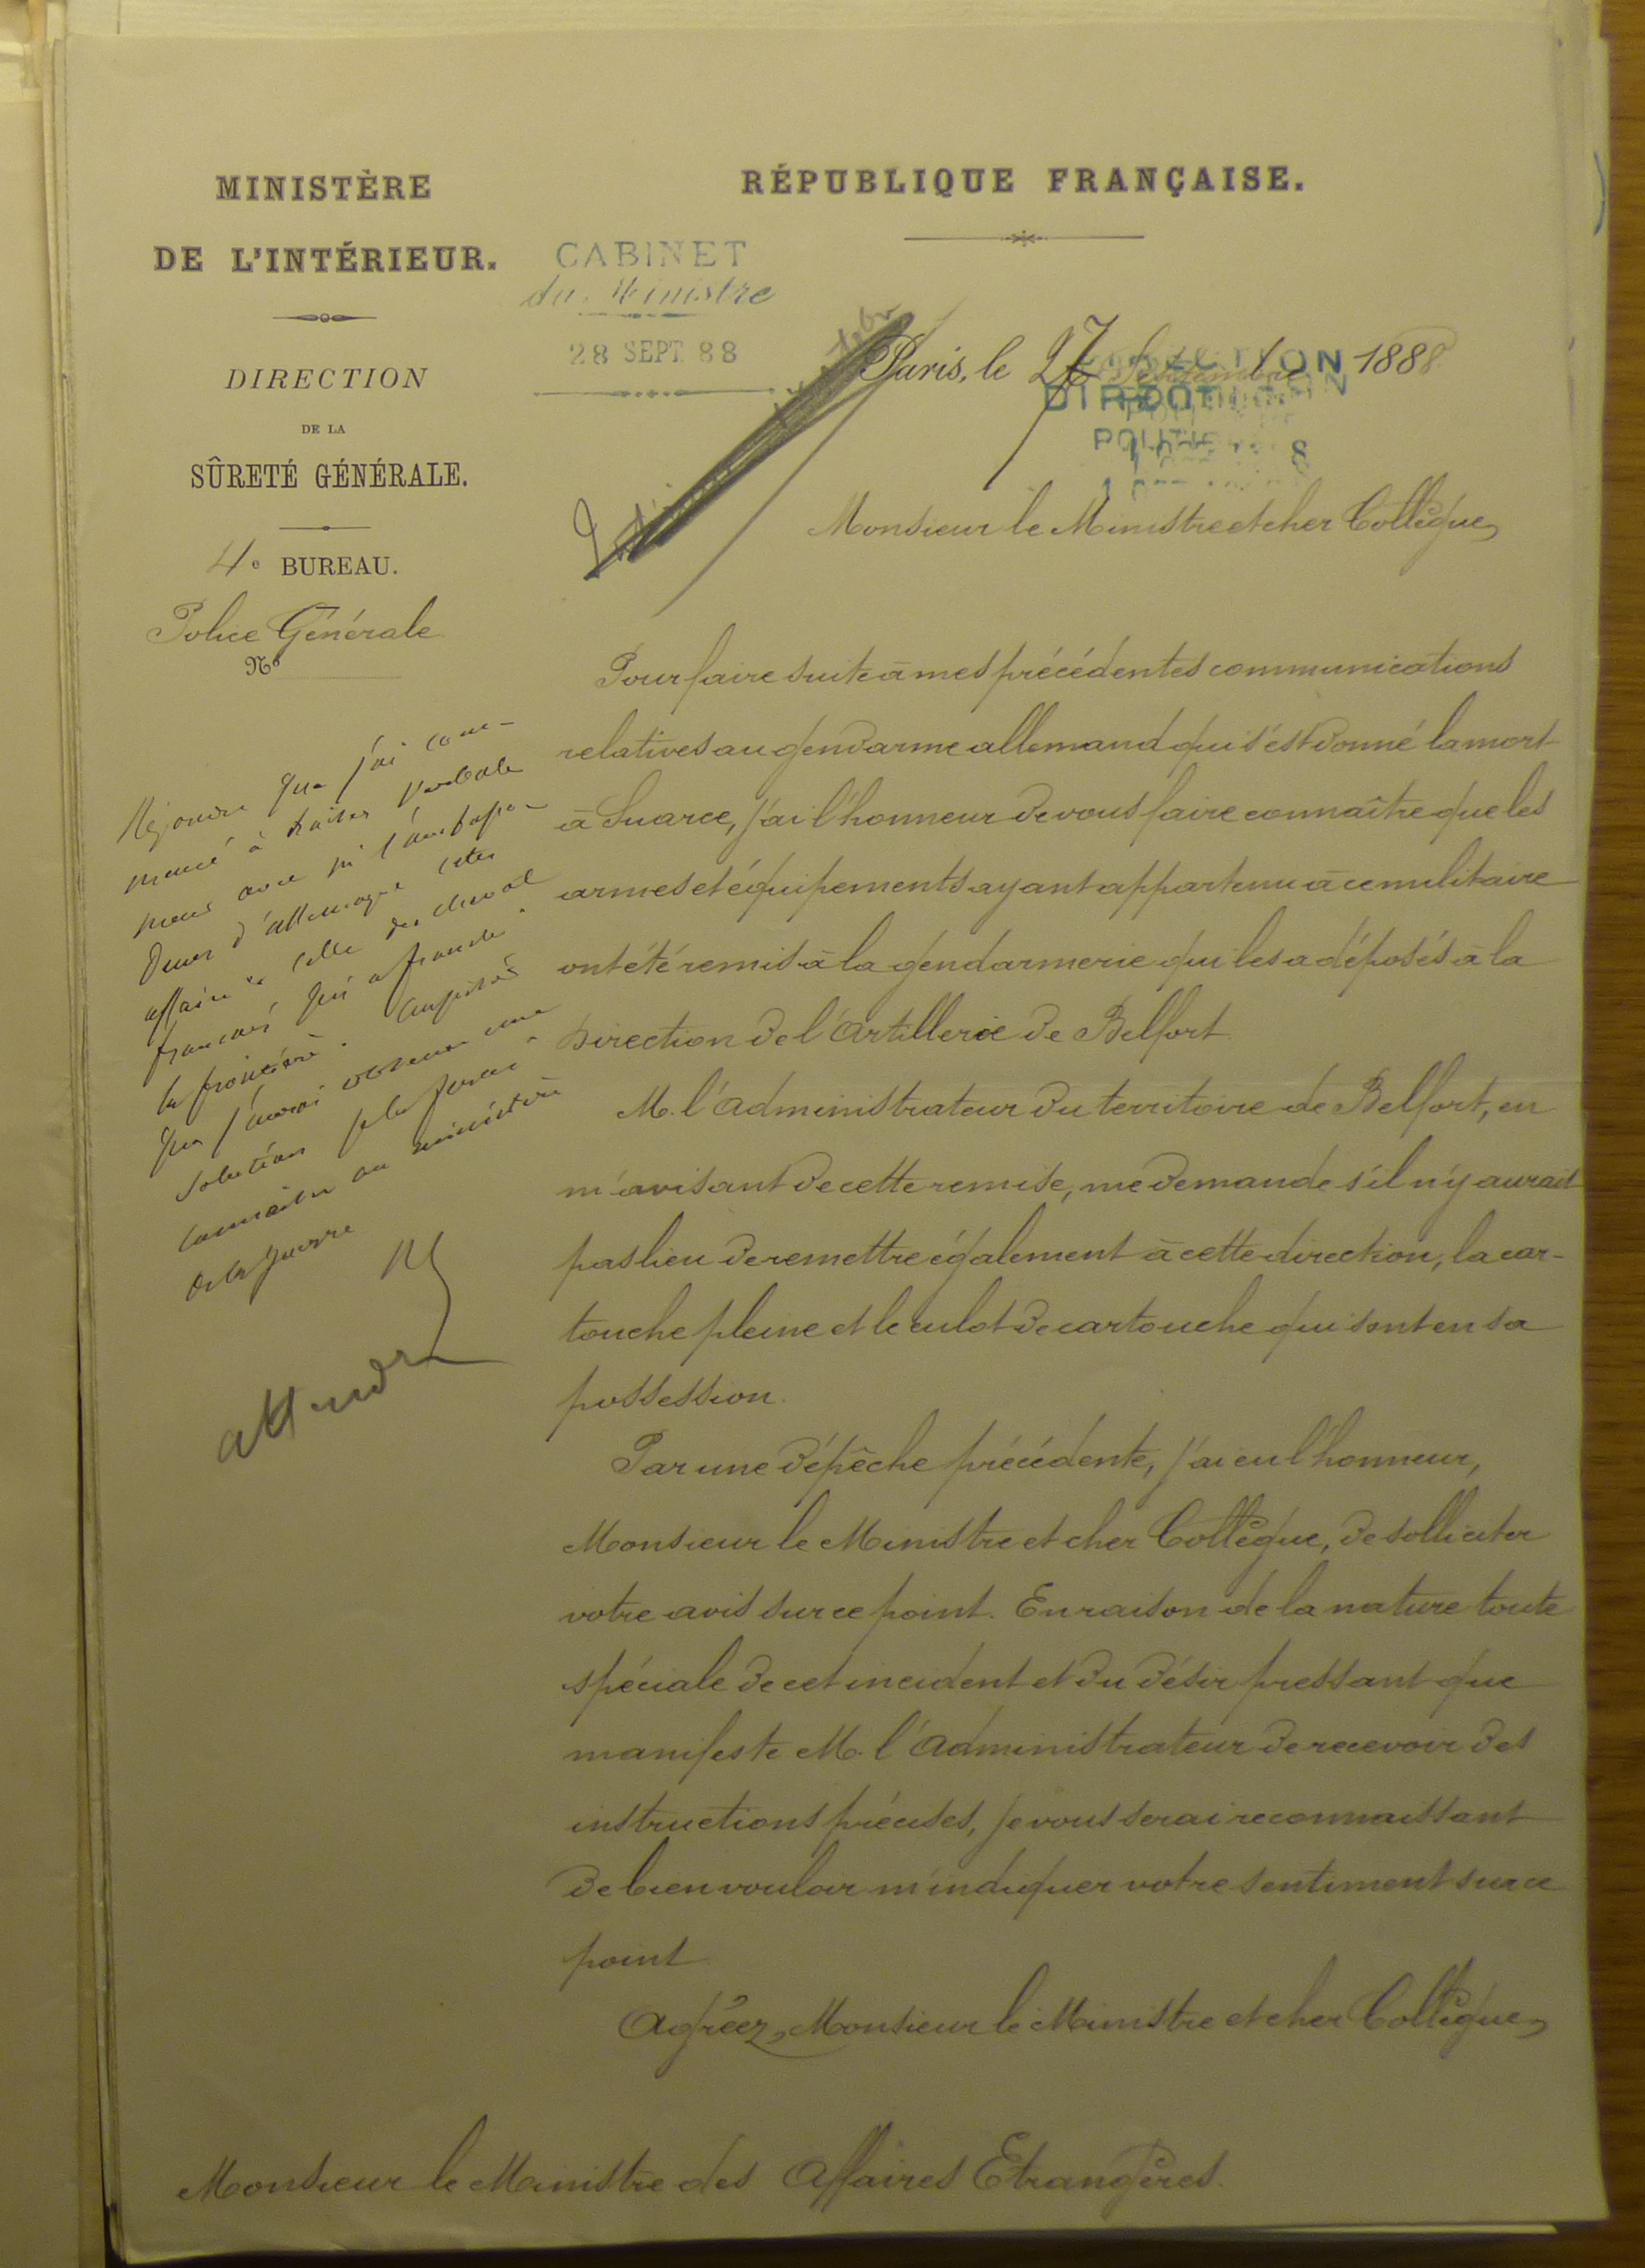 MINISTÈRE
DE L'INTÉRIEUR.
DIRECTION
DE LA
SÛRETÉ GÉNÉRALE.
4e BUREAU.
Police Générale
No
RÉPUBLIQUE FRANÇAISE.
CABINET
du Ministre
28 SEPT. 88
Paris, le 27 Septembre 1888
DIRECTION
POLITIQUE
Monsieur le Ministre et cher Collègue,
Pour faire suite à mes précédentes communications
relatives au gendarme allemand qui s'est donné la mort
à Suarce, j'ai l'honneur de vous faire connaître que les
armes et équipements ayant appartenu à ce militaire
ont été remis à la gendarmerie qui les a déposés à la
Direction de l'Artillerie de Belfort.
M. l'Administrateur du territoire de Belfort, en
m'avisant de cette remise, me demande s'il n'y aurait
pas lieu de remettre également à cette direction, la car-
touche pleine et le culot de cartouche qui sont en sa
possession.
Par une dépêche précédente, j'ai eu l'honneur,
Monsieur le Ministre et cher Collègue, de solliciter
votre avis sur ce point. En raison de la nature toute
spéciale de cet incident et du désir pressant que
manifeste M. l'Administrateur de recevoir des
instructions précises, je vous serai reconnaissant
de bien vouloir m'indiquer votre sentiment sur ce
point
Agréez, Monsieur le Ministre et cher Collègue,
Répondre que j'ai com-
mencé à traiter verbale
ment avec M l'ambassa-
deur d'Allemagne cette
affaire et celle du cheval
français qui a franchi
la frontière.
que j'aurai obtenu une
solution je la ferai
connaître au ministère
de la guerre
attendre
Monsieur le Ministre des Affaires Etrangères.